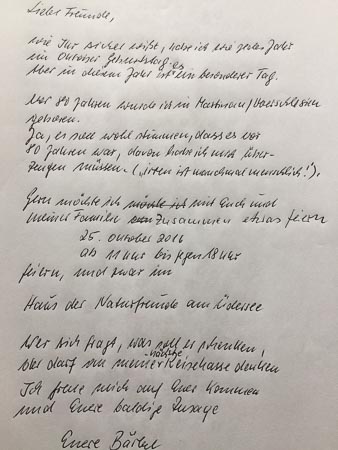 Liebe Freunde,
wie Ihr sicher wißt, habe ich wie jedes Jahr
im Oktober Geburtstag.
Aber in diesem Jahr ist es ein besonderer Tag.
Vor 80 Jahren wurde ich in /Oberschlesien
geboren.
Ja, es soll wohl stimmen, dass es vor
80 Jahren war, davon habe ich mich über-
zeugen müssen. („irren ist manchmal menschlich!“).
Gern möchte ich mit Euch und
meiner Familie zusammen etwas feiern
25. Oktober 2016
ab 11 Uhr bis gegen 18 Uhr
feiern, und zwar im
Haus der Naturfreunde am Üdersee
Wer sich fragt, was soll er schenken,
der darf an meine nächste Reisekasse denken
Ich freue mich auf Euer Kommen
und Eure baldige Zusage
Eure Bärbel